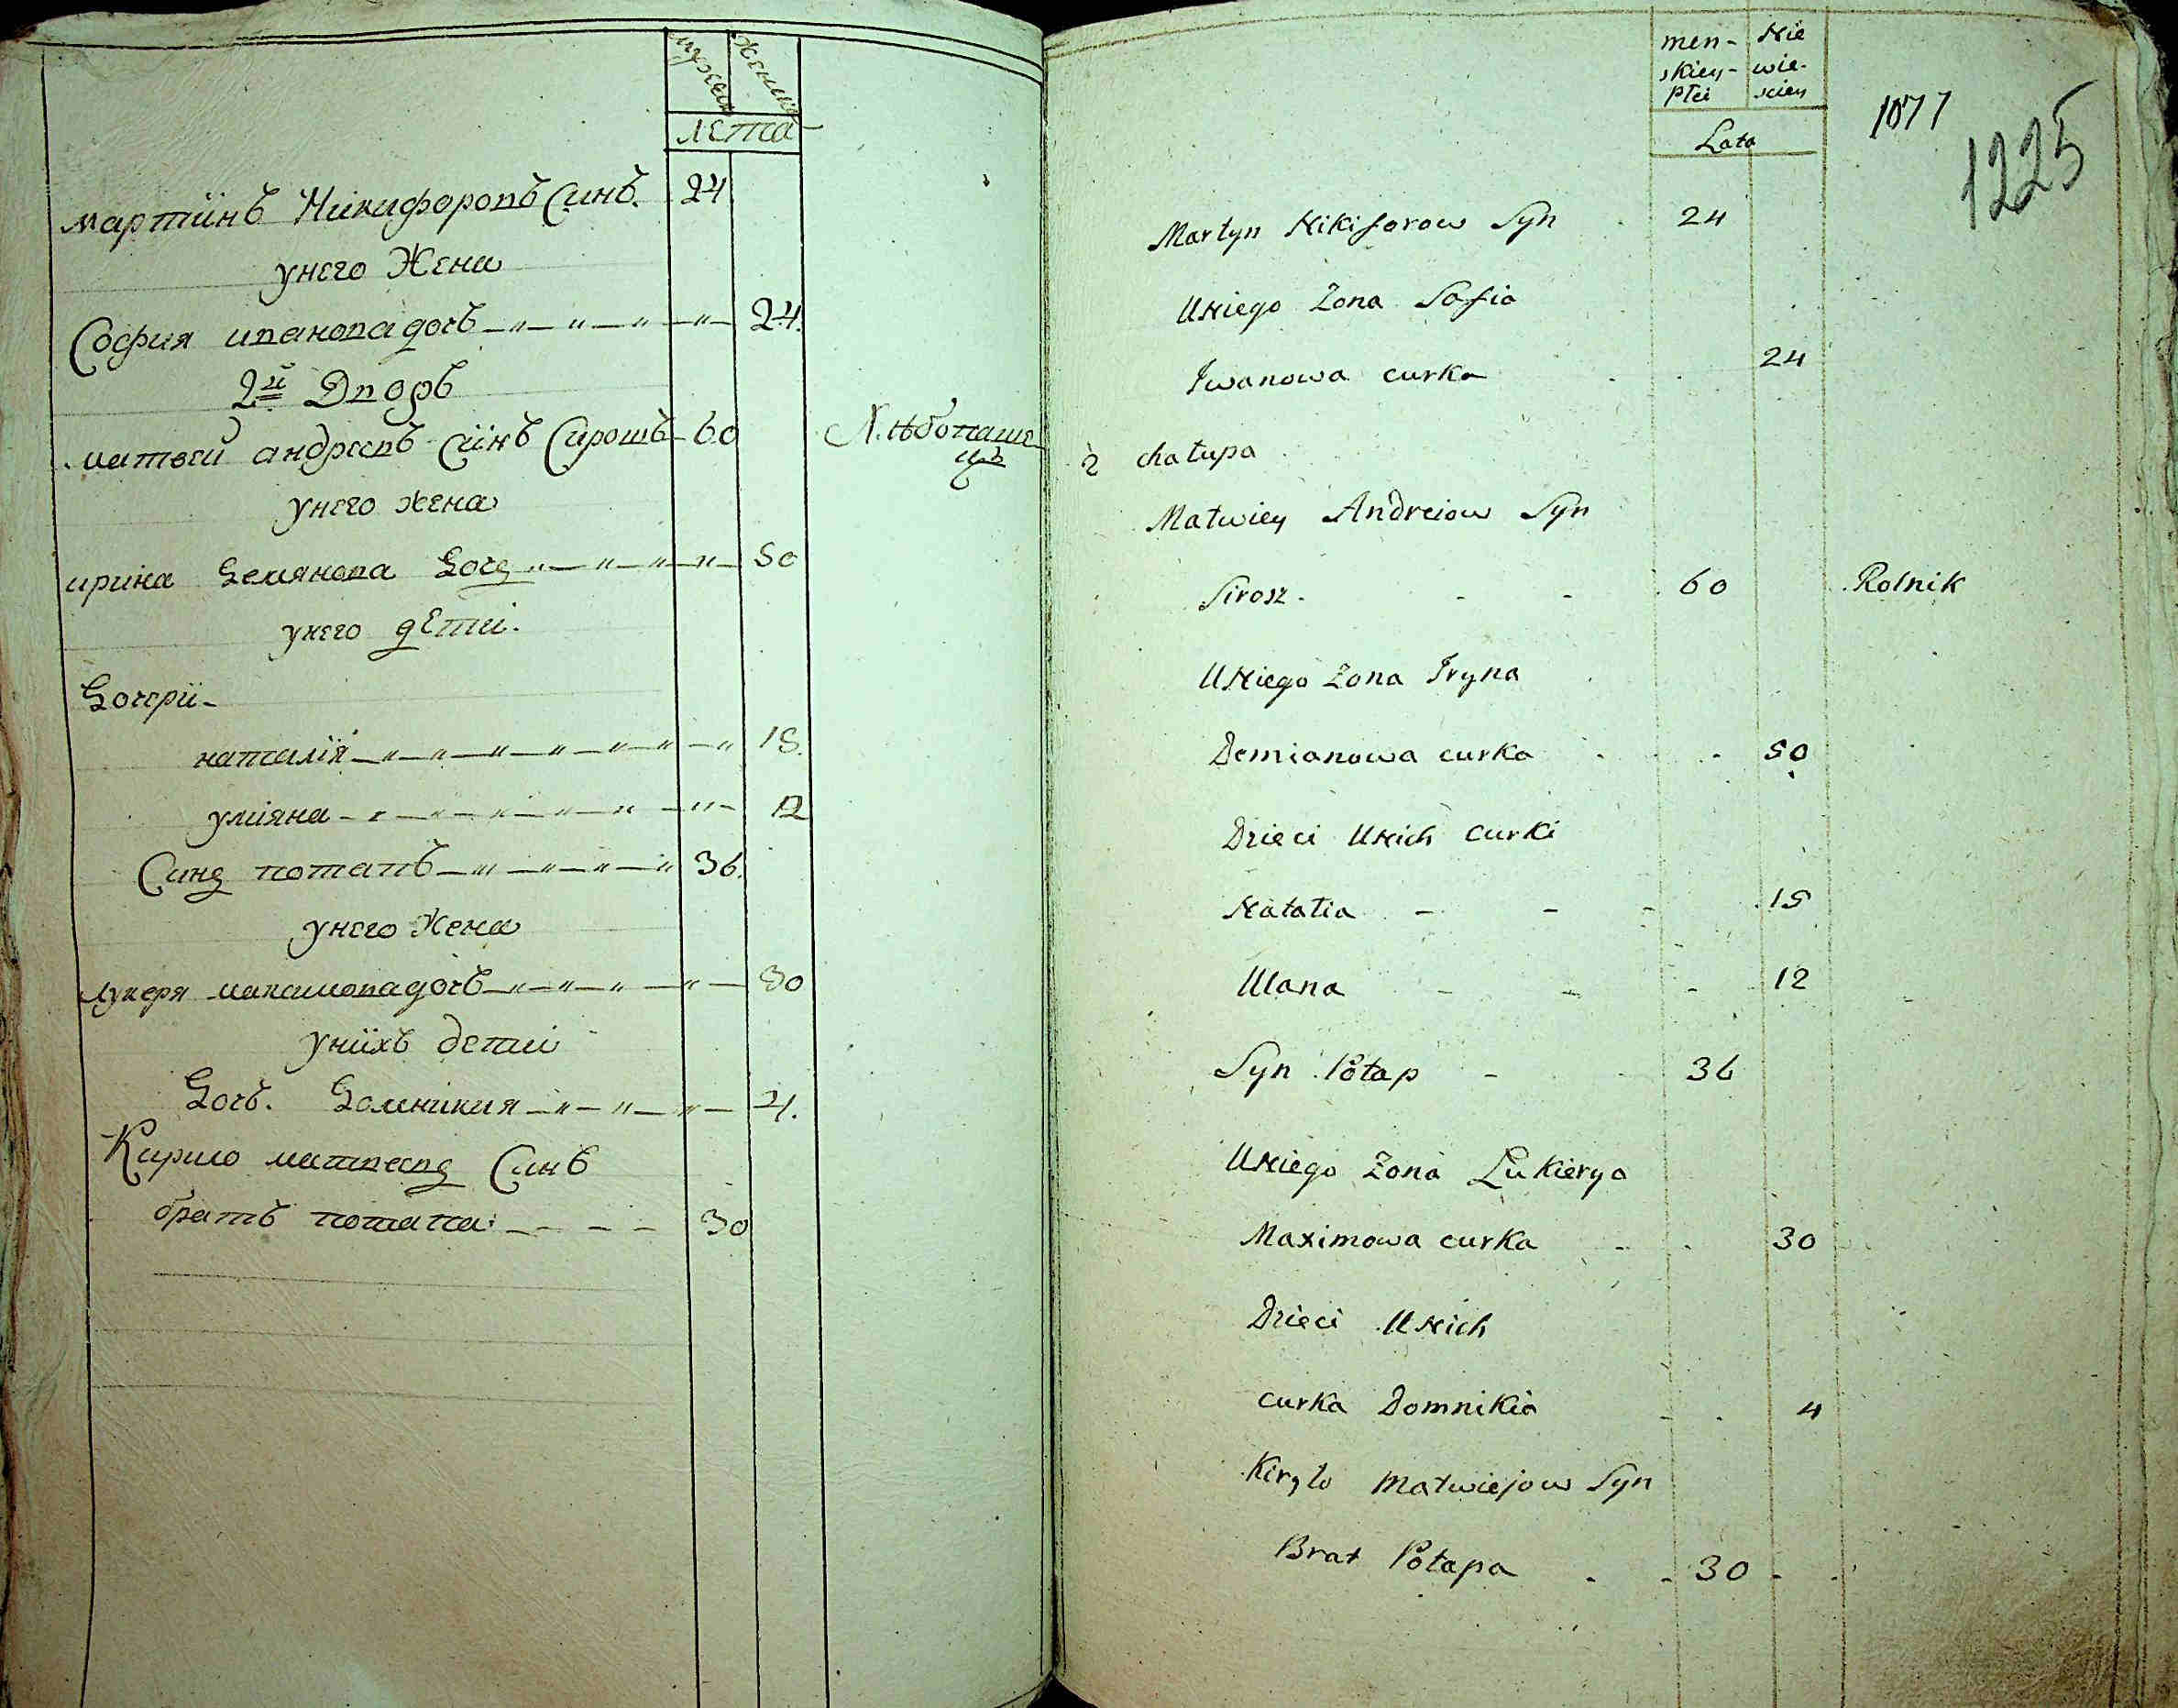 мужеск женск
лета
мартинъ Никифоровъ Синъ. 24
унего Жена
София иванова дочъ 24.
2й Дворъ
матвей андреевъ Синъ Сирошъ 60
унего жена
ирина Демянова Дочъ 50
унего дети.
Дочери
наталія 15.
уліяна 12
Синъ потапъ 36.
унего Жена
лукеря макимова дочъ 30
унихъ дети
Дочъ. Домникия 4.
Кирило матвеевъ Синъ
братъ потапа 30
men- Nie
skiey- wie-
płci sciey
Lata
1077
1225
Martyn Nikiforow Syn 24
U Niego Zona Sofia
Jwanowa curka 24
2 chałupa
Matwiey Andreiow Syn
Sirosz 60 Rolnik
U Niego Zona Jryna
Demianowa curka 50
Dzieci U Nich curki
Natalia 15
Ulana 12
Syn Potap 36
U Niego Zona Lukierya
Maximowa curka 30
Dzieci U Nich
curka Domnikia 4
Kiryło Matwiejow Syn
Brat Potapa 30